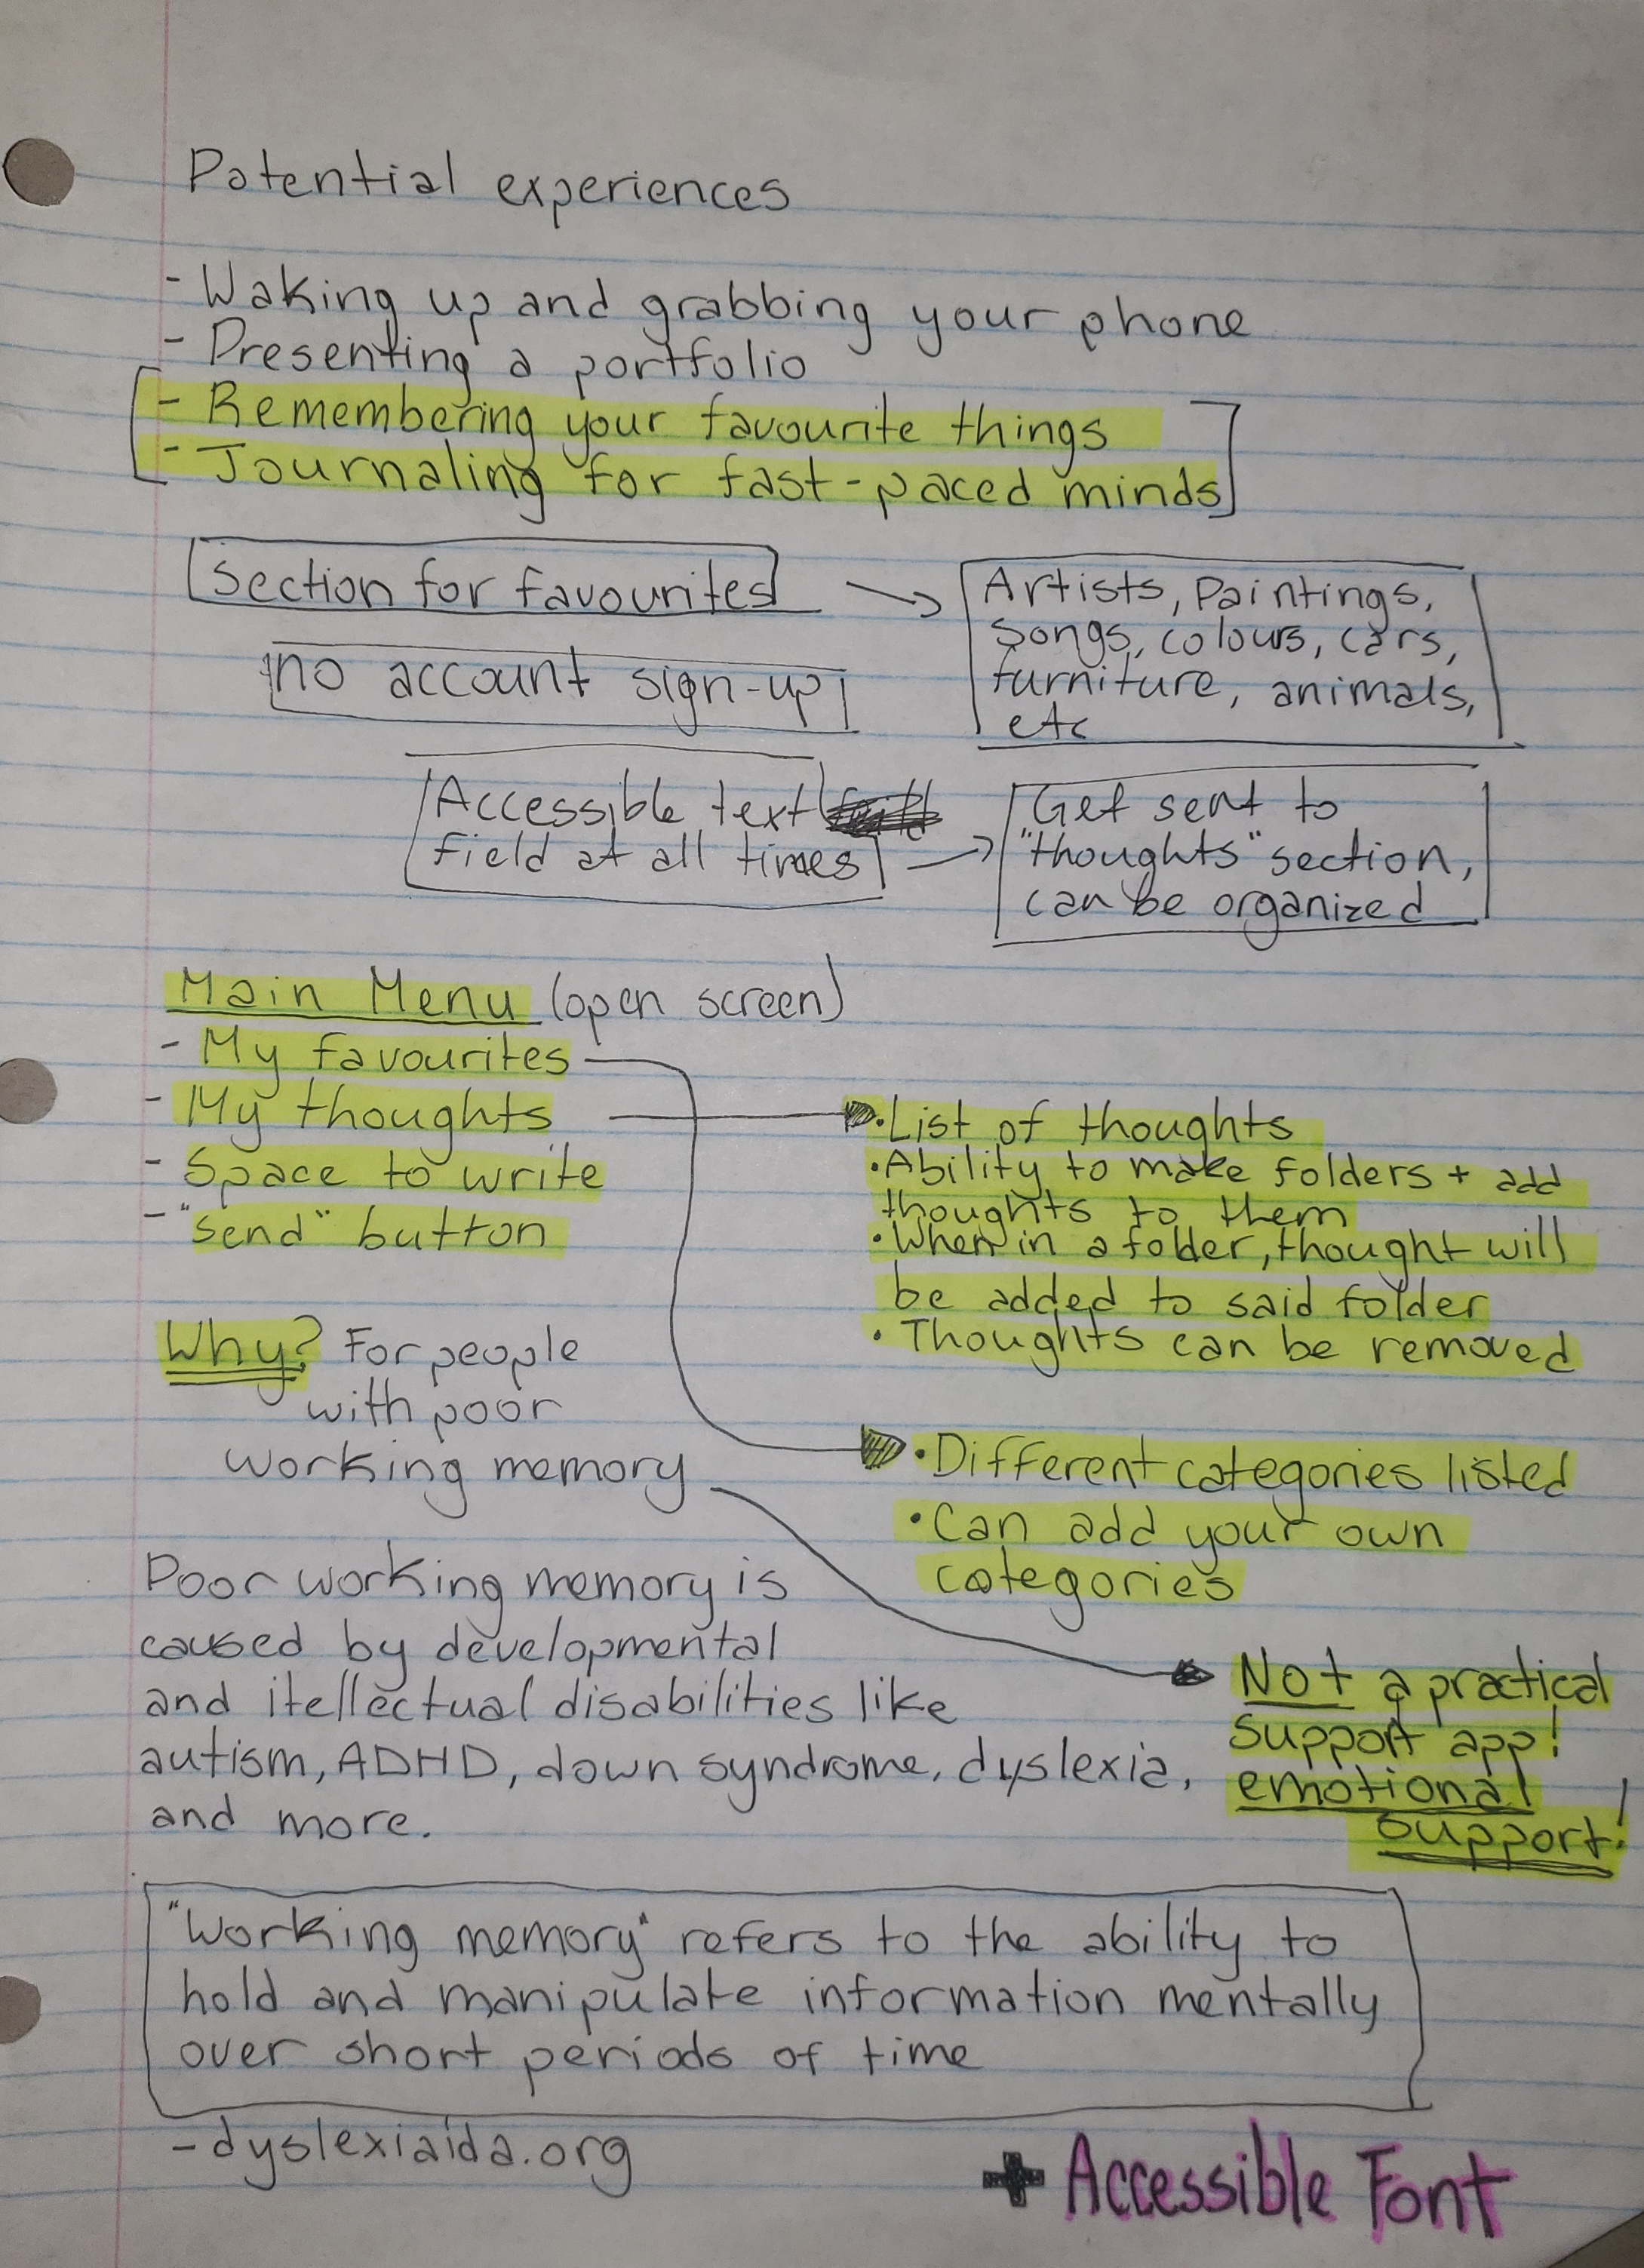 Potential experiences
- Waking up and grabbing your phone
- Presenting a portfolio
- Remembering your favourite things
- Journaling for fast-paced minds
Section for favourites
Artists, Paintings,
songs, colours, cars,
furniture, animals,
etc
no account sign-up
Accessible text
field at all times
Get sent to
"thoughts" section,
can be organized
Main Menu (open screen)
- My favourites
- My thoughts
- Space to write
- "send" button
• List of thoughts
• Ability to make folders + add
thoughts to them
• When in a folder, thought will
be added to said folder
• Thoughts can be removed
Why? For people
with poor
working memory
• Different categories listed
• Can add your own
categories
Not a practical
support app!
emotional
support!
Poor working memory is
caused by developmental
and itellectual disabilities like
autism, ADHD, down syndrome, dyslexia,
and more.
"Working memory" refers to the ability to
hold and manipulate information mentally
over short periods of time
- dyslexiaida.org
+ Accessible Font